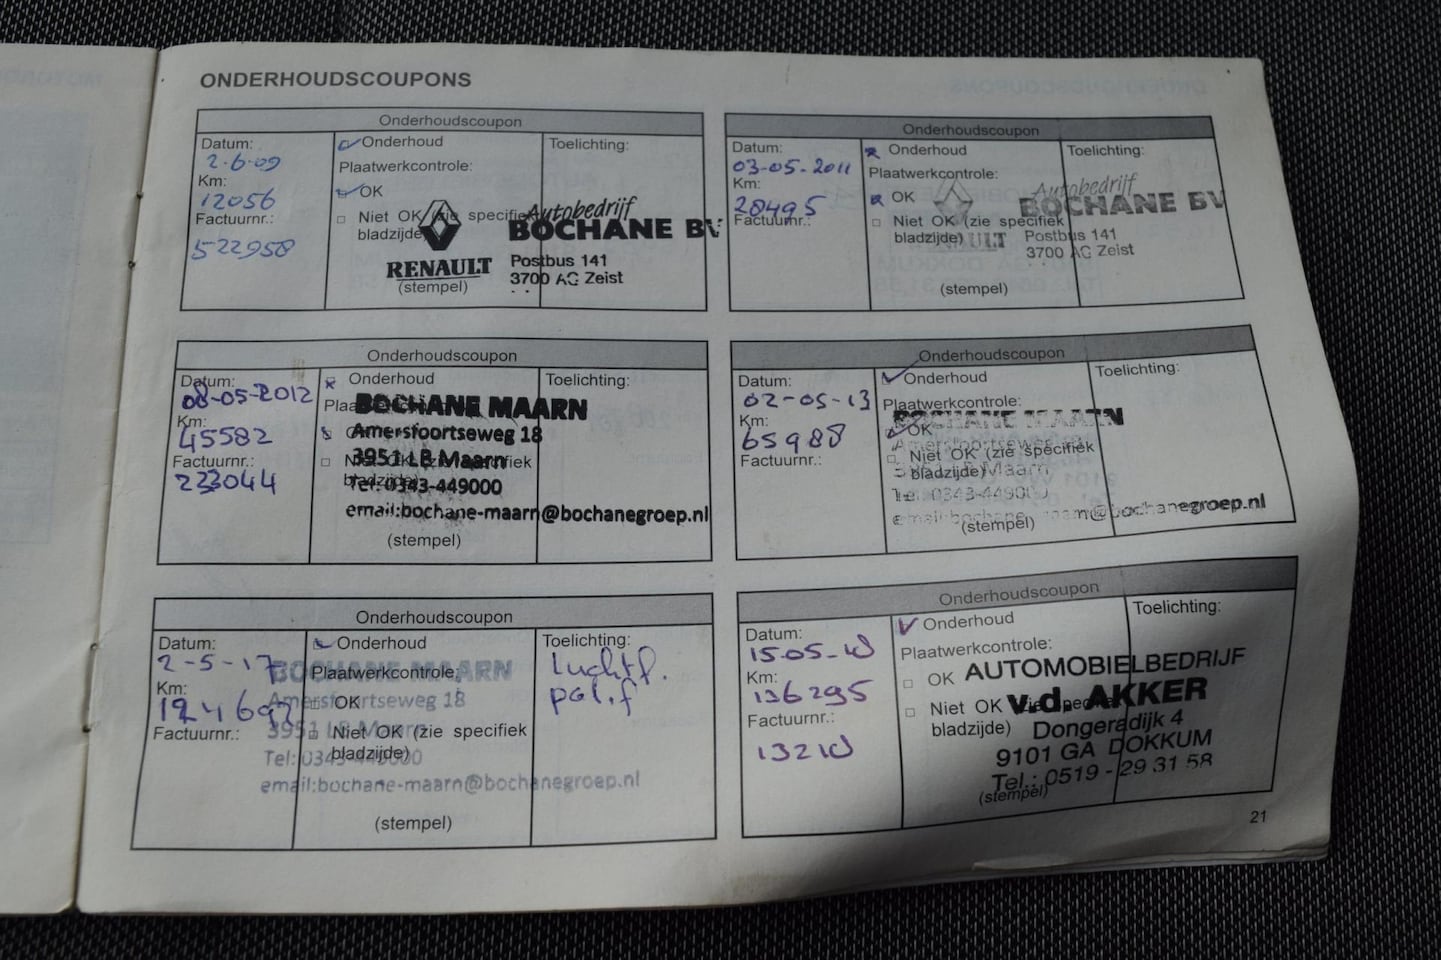 ONDERHOUDSCOUPONS
Onderhoudscoupon
Datum:
2-6-09
Km:
12056
Factuurnr.:
522958
Onderhoud
Plaatwerkcontrole:
OK
Niet OK (zie specifiek
bladzijde)
(stempel)
Toelichting:
RENAULT
Autobedrijf
BOCHANE BV
Postbus 141
3700 AC Zeist
Onderhoudscoupon
Datum:
03-05-2011
Km:
28495
Factuurnr.:
Onderhoud
Plaatwerkcontrole:
OK
Niet OK (zie specifiek
bladzijde)
(stempel)
Toelichting:
RENAULT
Autobedrijf
BOCHANE BV
Postbus 141
3700 AC Zeist
Onderhoudscoupon
Datum:
08-05-2012
Km:
45582
Factuurnr.:
233044
Onderhoud
Niet OK (zie specifiek
bladzijde)
(stempel)
Toelichting:
BOCHANE MAARN
Amersfoortseweg 18
3951 LB Maarn
Tel: 0343-449000
email:bochane-maarn@bochanegroep.nl
Onderhoudscoupon
Datum:
02-05-13
Km:
65988
Factuurnr.:
Onderhoud
Plaatwerkcontrole:
OK
Niet OK (zie specifiek
bladzijde)
(stempel)
Toelichting:
BOCHANE MAARN
Amersfoortseweg
3951 LB Maarn
Tel: 0343-449000
email:bochane-maarn@bochanegroep.nl
Onderhoudscoupon
Datum:
2-5-17
Km:
Factuurnr.:
Onderhoud
Plaatwerkcontrole:
OK
Niet OK (zie specifiek
bladzijde)
(stempel)
Toelichting:
luchtf.
pol.f
BOCHANE MAARN
Amersfoortseweg 18
3951 LB Maarn
Tel: 0343-449000
email:bochane-maarn@bochanegroep.nl
Onderhoudscoupon
Datum:
15-05-18
Km:
136295
Factuurnr.:
13218
Onderhoud
Plaatwerkcontrole:
OK
Niet OK (zie specifiek
bladzijde)
(stempel)
Toelichting:
AUTOMOBIELBEDRIJF
v.d. AKKER
Dongeradijk 4
9101 GA DOKKUM
Tel.: 0519 - 29 31 58
21